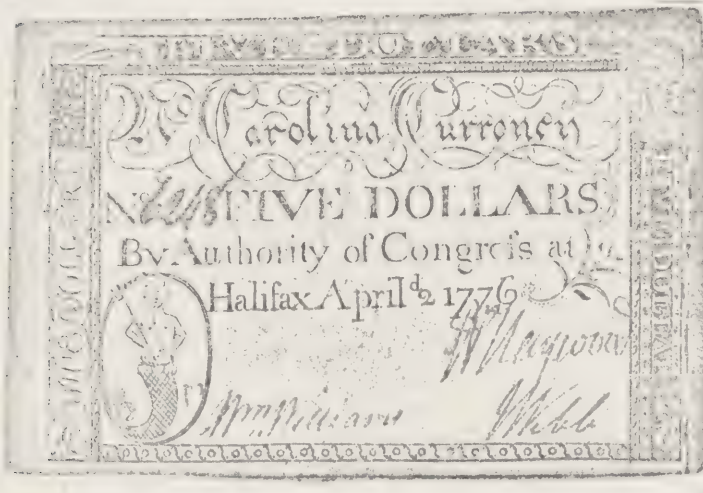 FIVE DOLLARS
No Carolina Currency
No FIVE DOLLARS
By Authority of Congreſs at
Halifax April 2d 1776
Wm Williams
J Webb
FIVE DOLLARS
FIVE DOLLARS